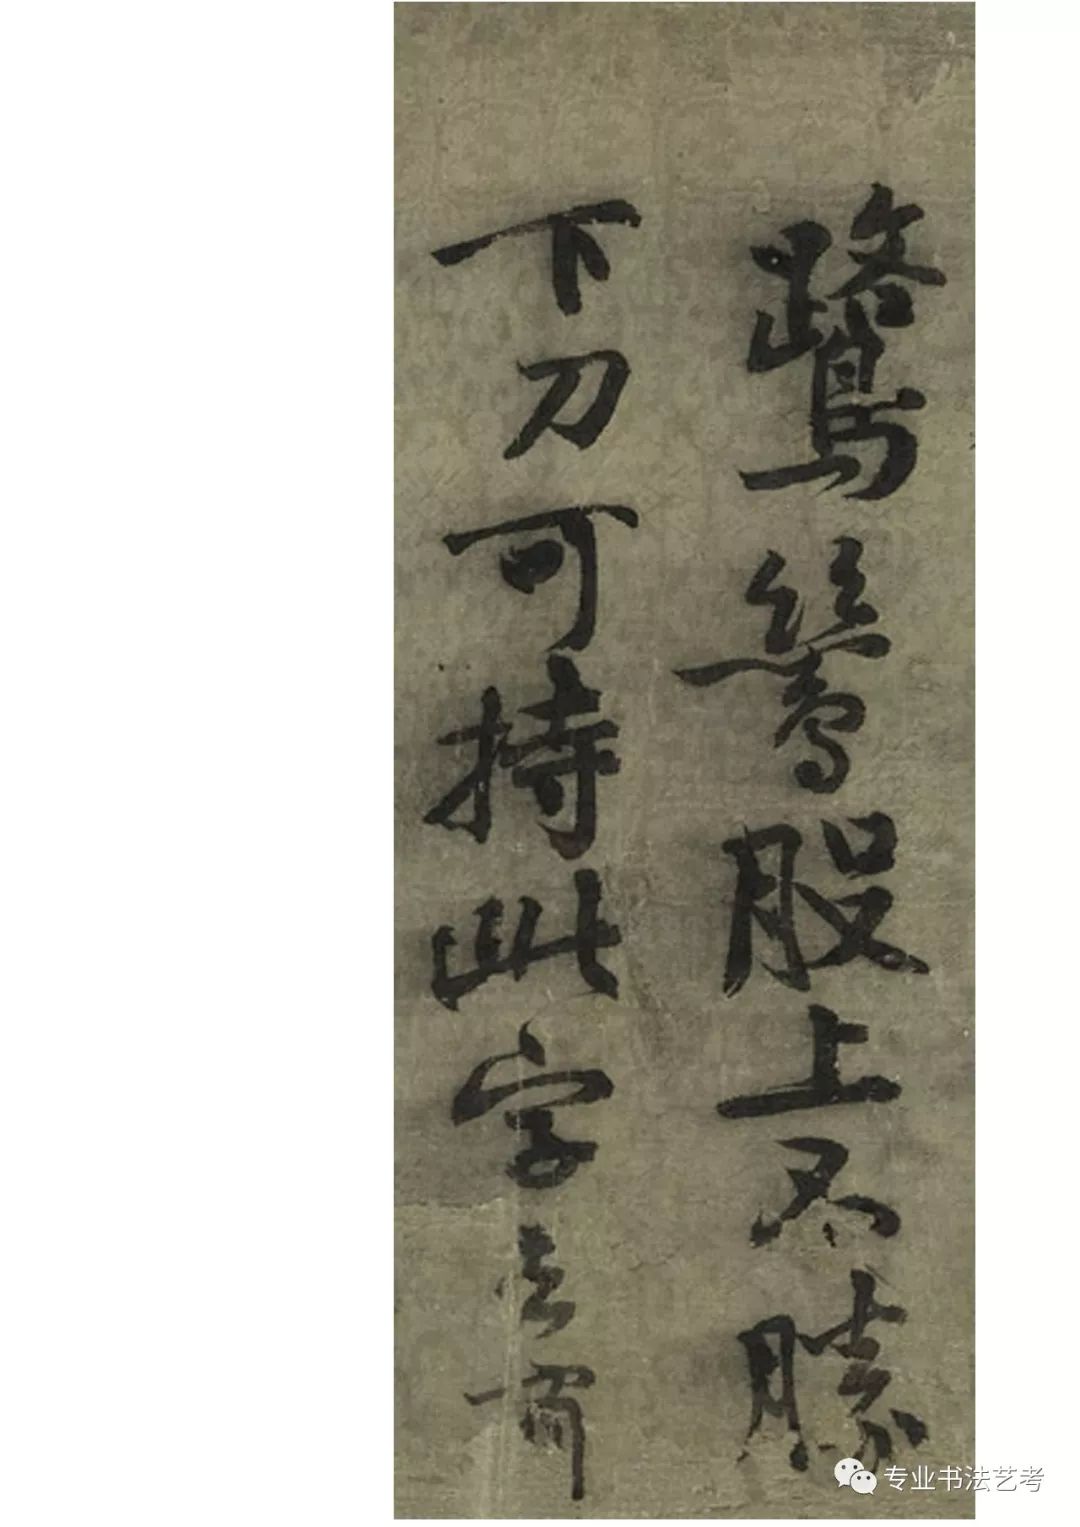 鷺鷥股上不勝
下刀可持此字去
专业书法艺考